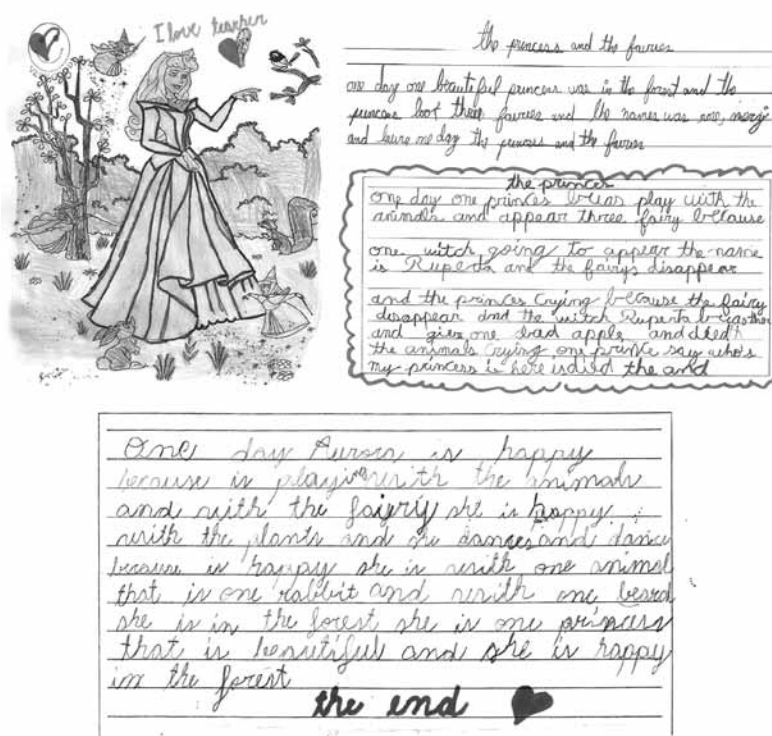 I love teacher
the princess and the fairies
one day one beautiful princess was in the forest and the
princess three fairies and the names was rose,
and one day the princess and the fairies
the princes
one day one princes play with the
animals and appear three fairy because
one witch going to appear the name
is Ruperta and the fairys disappear
and the princes Crying because the fairy
disappear and the witch Ruperta
and give one bad apple and died
the animals Crying one prince say who's
my princess is here is died the and
One day Aurora is happy
because is playing with the animals
and with the faiery she is happy
with the plants and she dances and dance
because is happy she is with one animal
that is one rabbit and with one beard
she is in the forest she is one princess
that is beautiful and she is happy
in the forest
the end